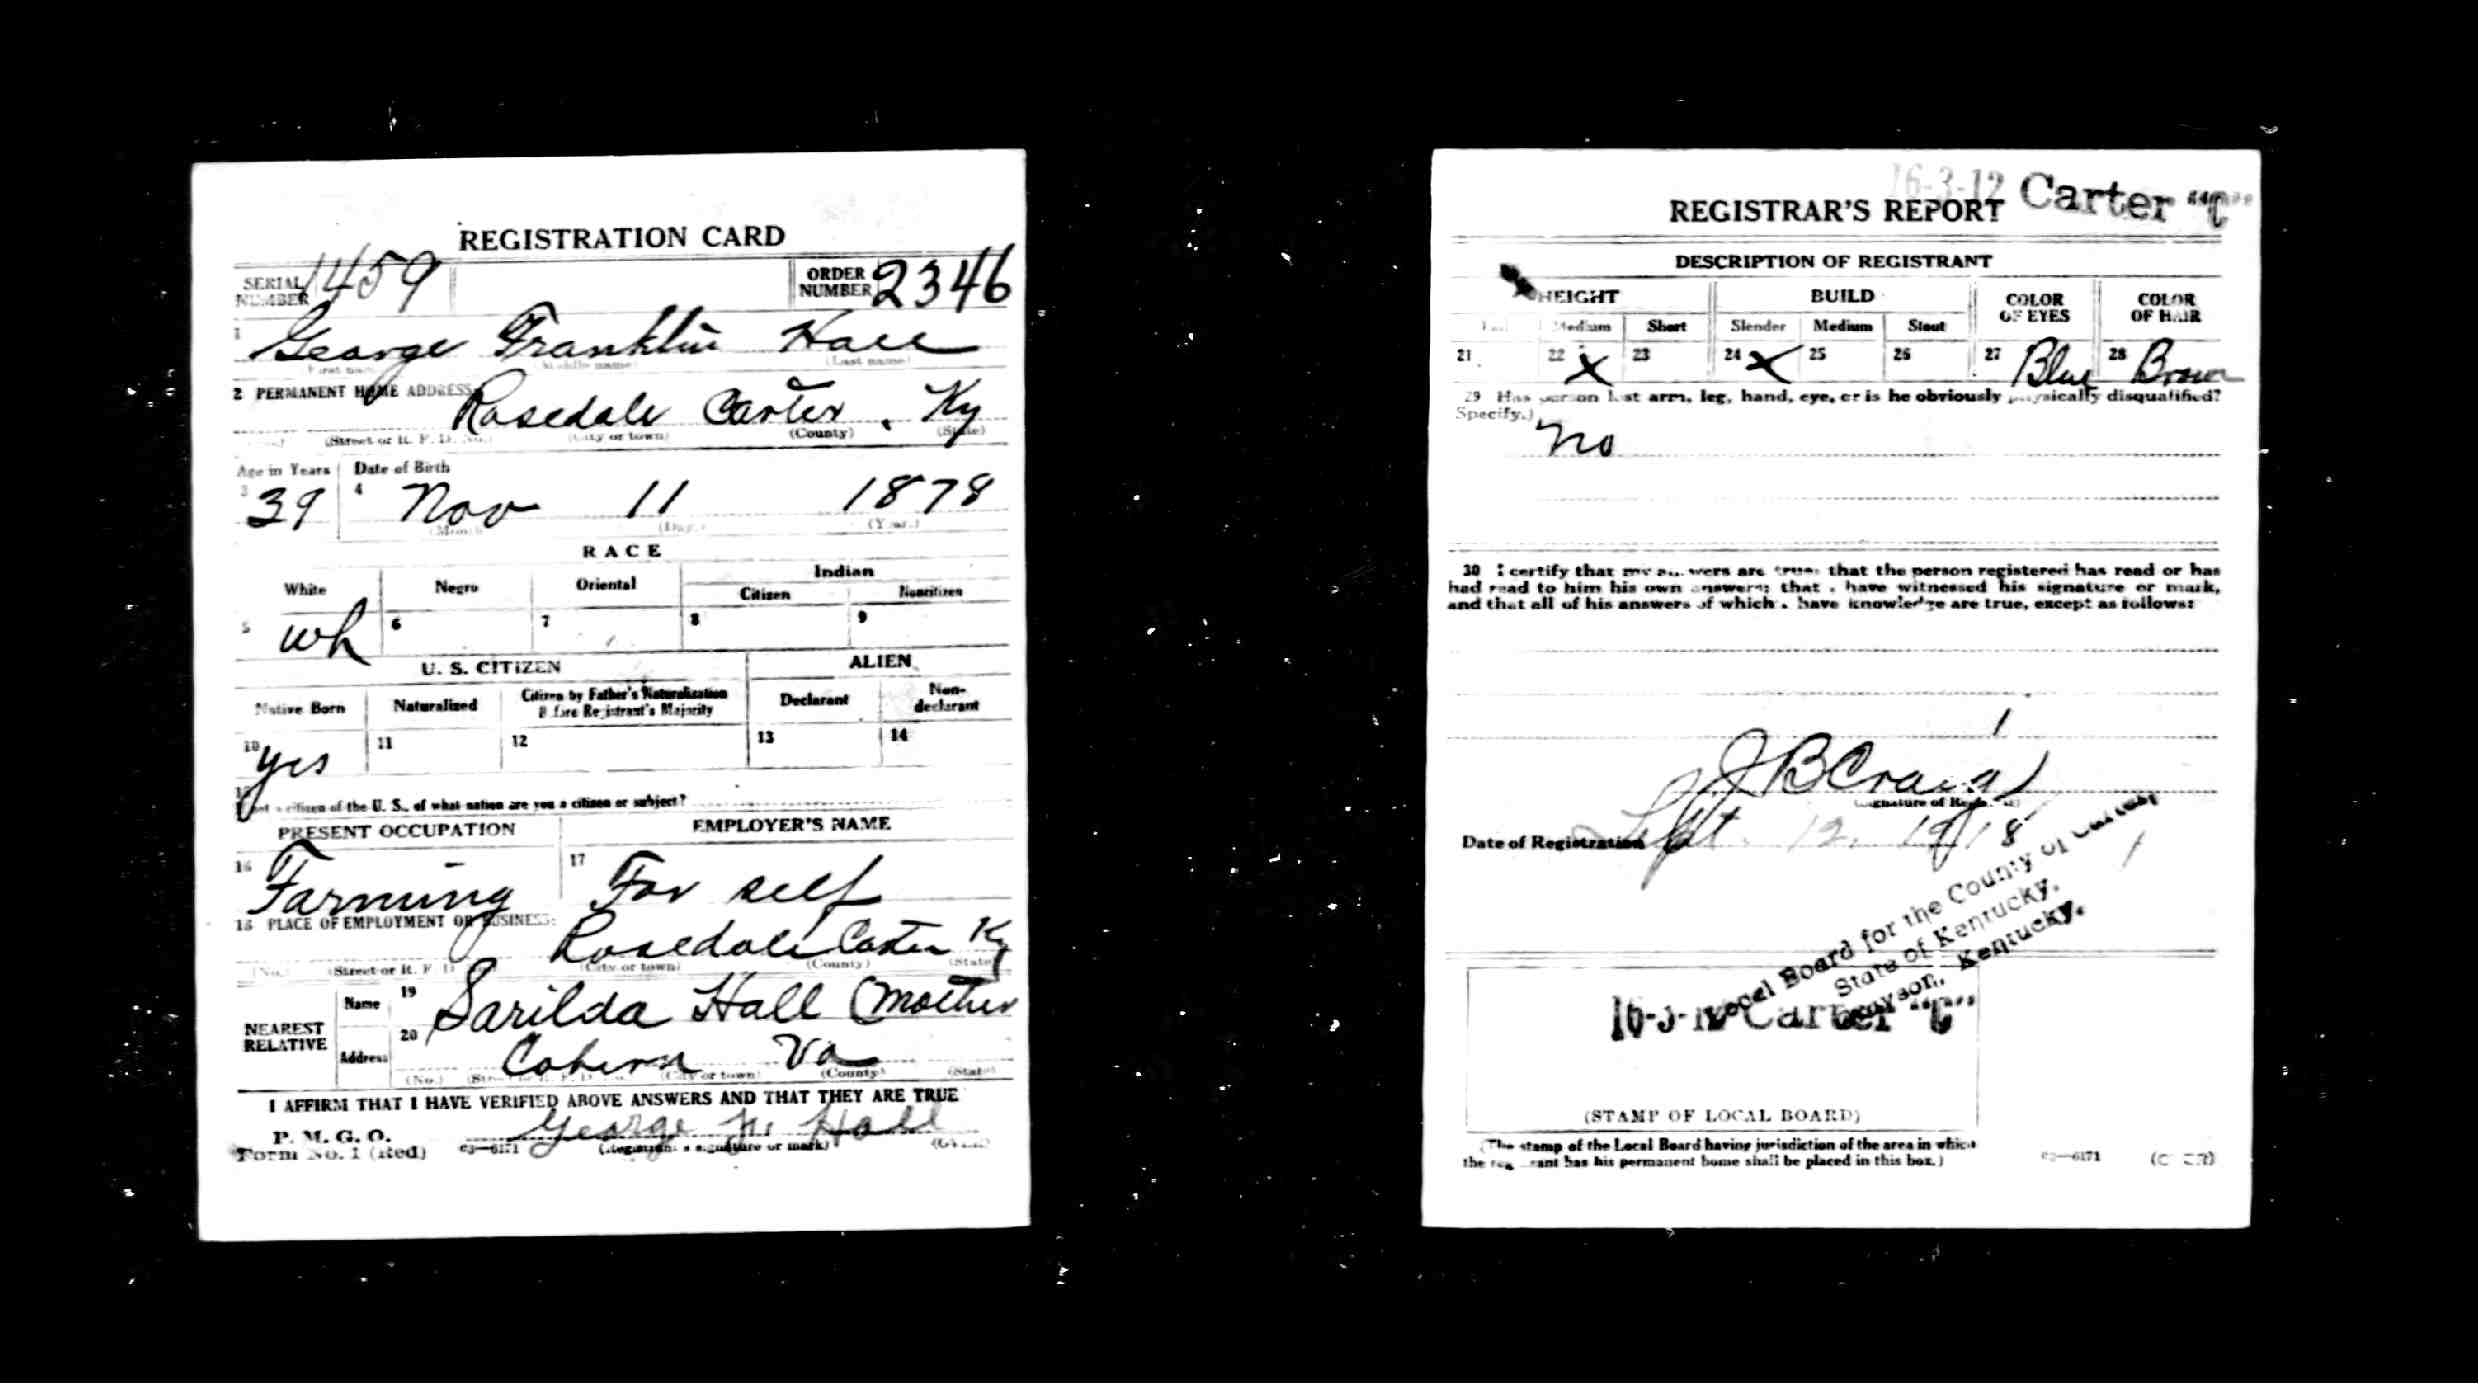 REGISTRATION CARD
SERIAL NUMBER 1459 ORDER NUMBER 2346
1 George Franklin Hall
(Last name)
2 PERMANENT HOME ADDRESS
Rosedale Carter, Ky
(Street or R. F. D. No.) (City or town) (County) (State)
Age in Years Date of Birth
3 39 4 Nov 11 1878
(Month) (Day) (Year)
RACE
White Negro Oriental Indian
Citizen Noncitizen
5 wh 6 7 8 9
U. S. CITIZEN ALIEN
Native Born Naturalized Citizen by Father's Naturalization Before Registrant's Majority Declarant Non-declarant
10 yes 11 12 13 14
15
not a citizen of the U. S., of what nation are you a citizen or subject?
PRESENT OCCUPATION EMPLOYER'S NAME
16 Farming 17 For self
18 PLACE OF EMPLOYMENT OR BUSINESS:
Rosedale Carter Ky
(No.) (Street or R. F. D. (City or town) (County) (State)
NEAREST RELATIVE Name 19 Sarilda Hall (Mother
Address 20 Va
(No.) (City or town) (County) (State)
I AFFIRM THAT I HAVE VERIFIED ABOVE ANSWERS AND THAT THEY ARE TRUE
P. M. G. O.
Form No. 1 (Red) 03—6171 George Hall
(Registrant's signature or mark) (OVER)
16-3-12 Carter "C"
REGISTRAR'S REPORT
DESCRIPTION OF REGISTRANT
HEIGHT BUILD COLOR OF EYES COLOR OF HAIR
Medium Short Slender Medium Stout
21 22 X 23 24 X 25 26 27 Blue 28 Brown
29 Has person lost arm, leg, hand, eye, or is he obviously physically disqualified?
Specify.)
No
30 I certify that my answers are true; that the person registered has read or has
had read to him his own answers; that I have witnessed his signature or mark,
and that all of his answers of which I have knowledge are true, except as follows:
J B Craig
(Signature of Registrar)
Date of Registration Sept. 12, 1918
Local Board for the County of Carter
State of Kentucky.
Grayson, Kentucky.
16-3-12 Carter "C"
(STAMP OF LOCAL BOARD)
(The stamp of the Local Board having jurisdiction of the area in which
the registrant has his permanent home shall be placed in this box.)
03—6171 (OVER)